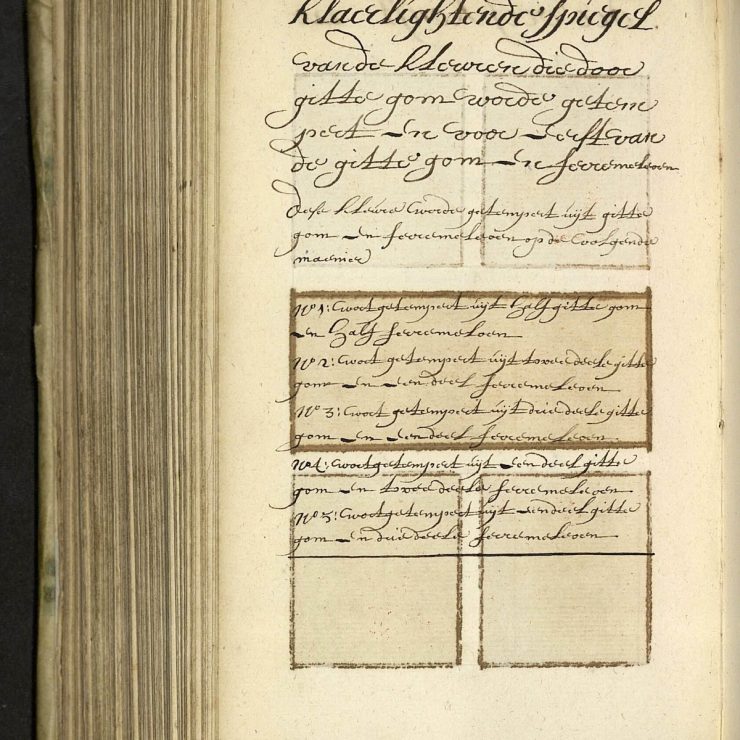 klaerlightende spiegel
van de kleuren die door
gitte gom worde getem
pert en voor eerst van
de gitte gom en fermeloen
dese kleure worde getempert uÿt gitte
gom en fermeloen op de volgende
maenier
No 1: wort getempert uÿt half gitte gom
en half fermeloen
No 2: wort getempert uÿt twee deele gitte
gom en een deel fermeloen
No 3: wort getempert uÿt drie deele gitte
gom en een deel fermeloen
No 4: wort getempert uÿt een deel gitte
gom en twee deele fermeloen
No 5: wort getempert uÿt een deel gitte
gom en drie deele fermeloen